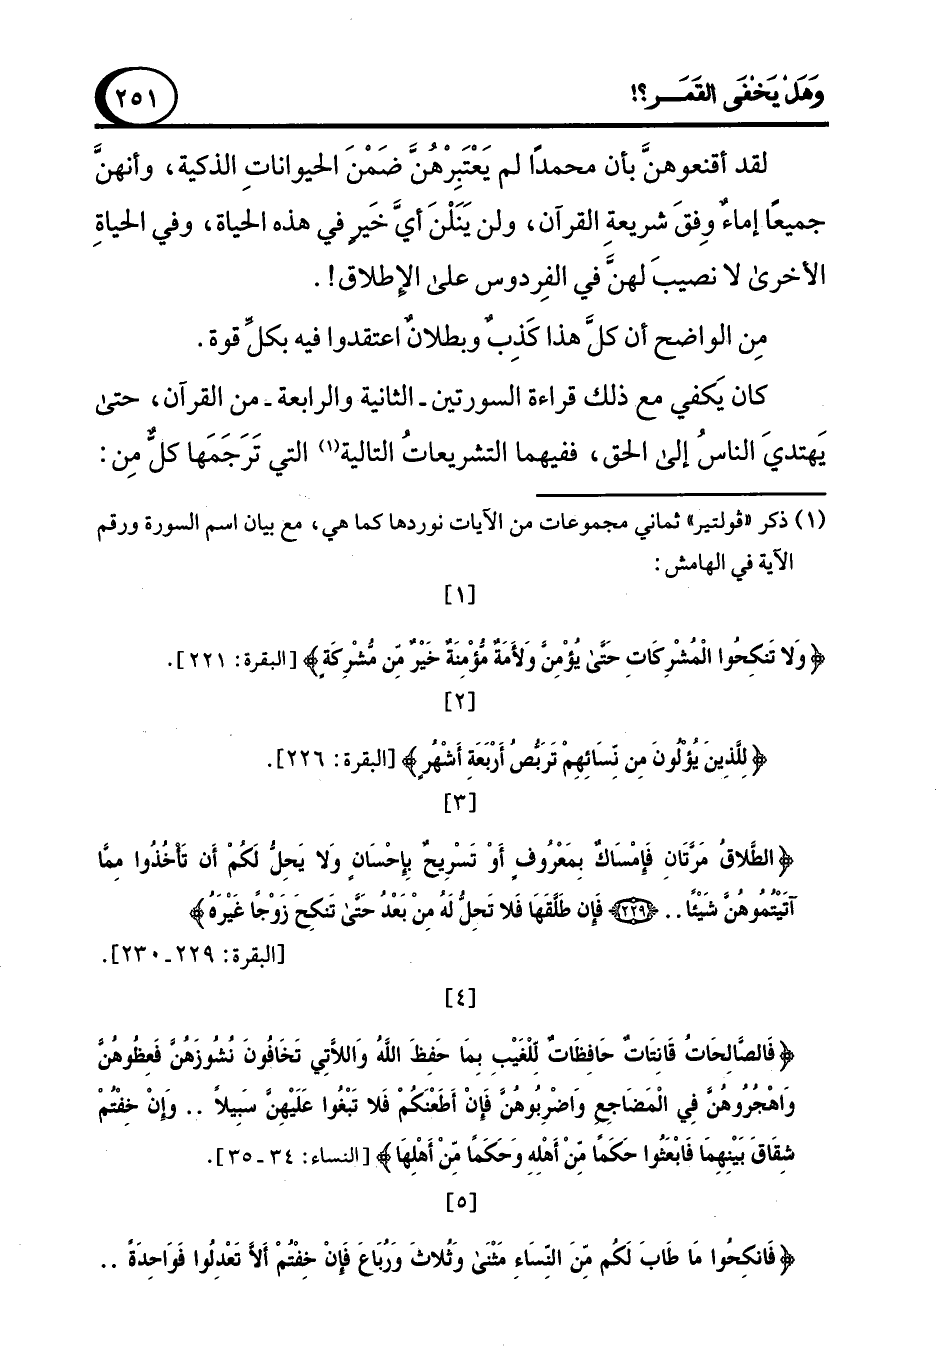 وَهَلْ يَخْفَى القَمَـــر؟!
٢٥١
لقد أقنعوهنَّ بأن محمدًا لم يَعْتَبِرْهُنَّ ضَمْنَ الحيواناتِ الذكية، وأنهنَّ
جميعًا إماءٌ وِفقَ شريعةِ القرآن، ولن يَنَلْنَ أيَّ خَيرٍ في هذه الحياة، وفي الحياةِ
الأخرىٰ لا نصيبَ لهنَّ في الفِردوس علىٰ الإطلاق!.
مِن الواضح أن كلَّ هذا كَذِبٌ وبطلانٌ اعتقدوا فيه بكلِّ قوة.
كان يَكفي مع ذلك قراءة السورتين ـ الثانية والرابعة ـ من القرآن، حتىٰ
يَهتديَ الناسُ إلىٰ الحق، ففيهما التشريعاتُ التالية(١) التي تَرجَمَها كلٌّ مِن:
(١) ذكر «ڤولتير» ثماني مجموعات من الآيات نوردها كما هي، مع بيان اسم السورة ورقم
الآية في الهامش:
[١]
﴿وَلا تَنكِحُوا الْمُشْرِكَاتِ حَتَّىٰ يُؤْمِنَّ وَلأَمَةٌ مُّؤْمِنَةٌ خَيْرٌ مِّن مُّشْرِكَةٍ﴾ [البقرة: ٢٢١].
[٢]
﴿لِلَّذِينَ يُؤْلُونَ مِن نِّسَائِهِمْ تَرَبُّصُ أَرْبَعَةِ أَشْهُرٍ﴾ [البقرة: ٢٢٦].
[٣]
﴿الطَّلاقُ مَرَّتَانِ فَإِمْسَاكٌ بِمَعْرُوفٍ أَوْ تَسْرِيحٌ بِإِحْسَانٍ وَلا يَحِلُّ لَكُمْ أَن تَأْخُذُوا مِمَّا
آتَيْتُمُوهُنَّ شَيْئًا .. ﴿٢٢٩﴾ فَإِن طَلَّقَهَا فَلا تَحِلُّ لَهُ مِنْ بَعْدُ حَتَّىٰ تَنكِحَ زَوْجًا غَيْرَهُ﴾
[البقرة: ٢٢٩ ـ ٢٣٠].
[٤]
﴿فَالصَّالِحَاتُ قَانِتَاتٌ حَافِظَاتٌ لِّلْغَيْبِ بِمَا حَفِظَ اللَّهُ وَاللاَّتِي تَخَافُونَ نُشُوزَهُنَّ فَعِظُوهُنَّ
وَاهْجُرُوهُنَّ فِي الْمَضَاجِعِ وَاضْرِبُوهُنَّ فَإِنْ أَطَعْنَكُمْ فَلا تَبْغُوا عَلَيْهِنَّ سَبِيلاً .. وَإِنْ خِفْتُمْ
شِقَاقَ بَيْنِهِمَا فَابْعَثُوا حَكَمًا مِّنْ أَهْلِهِ وَحَكَمًا مِّنْ أَهْلِهَا﴾ [النساء: ٣٤ ـ ٣٥].
[٥]
﴿فَانكِحُوا مَا طَابَ لَكُم مِّنَ النِّسَاءِ مَثْنَىٰ وَثُلاثَ وَرُبَاعَ فَإِنْ خِفْتُمْ أَلاَّ تَعْدِلُوا فَوَاحِدَةً ..